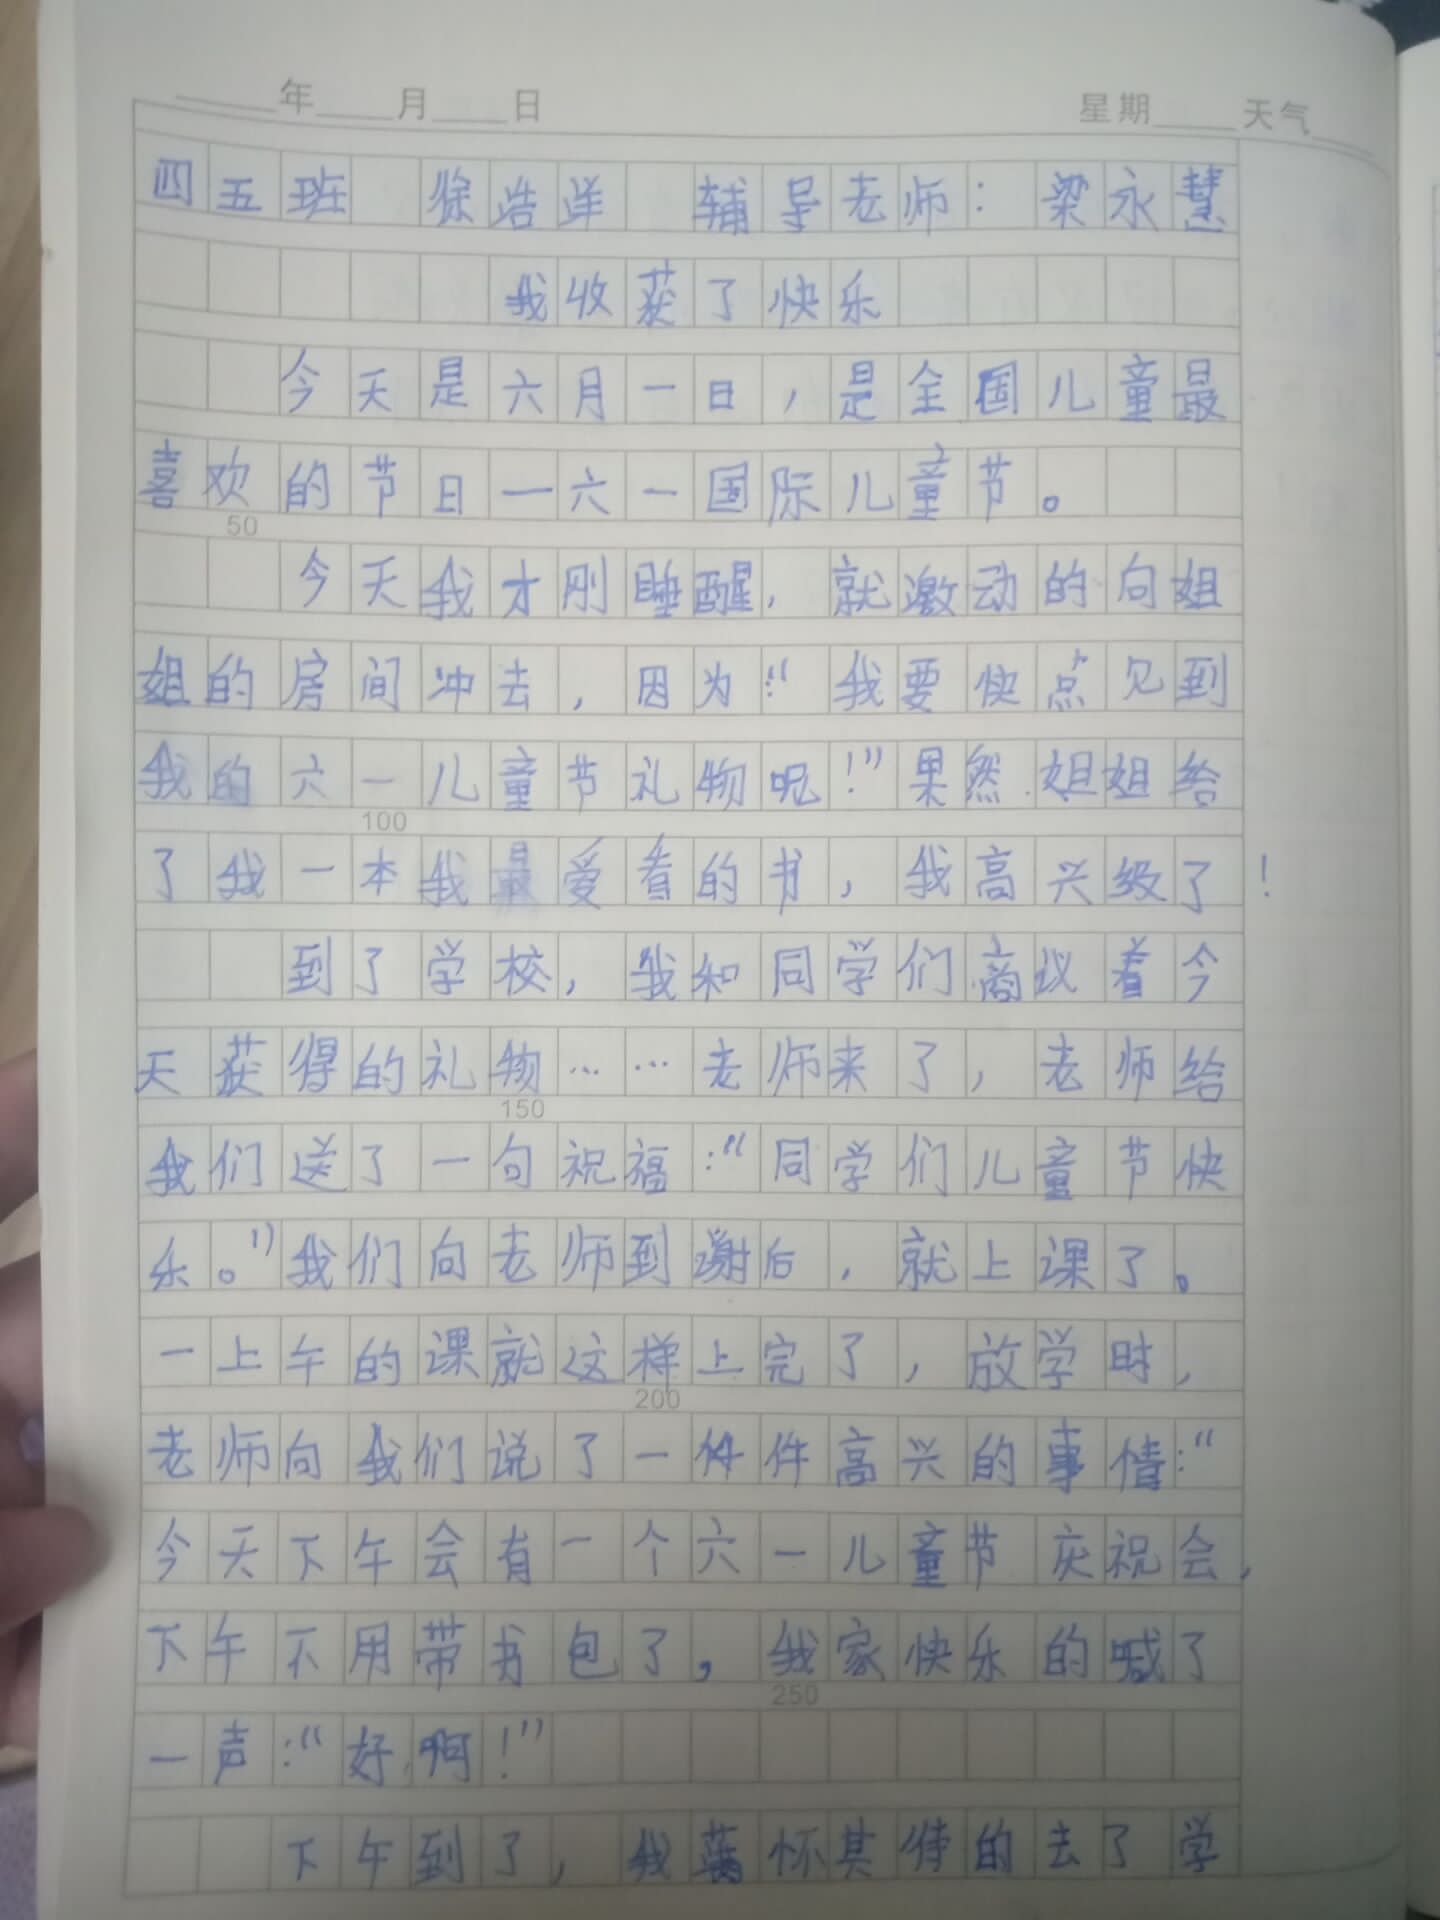 年 月 日 星期 天气
四五班 徐浩洋 辅导老师：梁永慧
我收获了快乐
今天是六月一日，是全国儿童最
喜欢的节日一六一国际儿童节。
50
今天我才刚睡醒，就激动的向姐
姐的房间冲去，因为：“我要快点见到
我的六一儿童节礼物呢！”果然.姐姐给
100
了我一本我最爱看的书，我高兴级了！
到了学校，我和同学们商议着今
天获得的礼物……老师来了，老师给
150
我们送了一句祝福：“同学们儿童节快
乐。”我们向老师到谢后，就上课了。
一上午的课就这样上完了，放学时，
200
老师向我们说了一件件高兴的事情：“
今天下午会有一个六一儿童节庆祝会，
下午不用带书包了。我家快乐的喊了
250
一声：“好啊！”
下午到了，我满怀其待的去了学